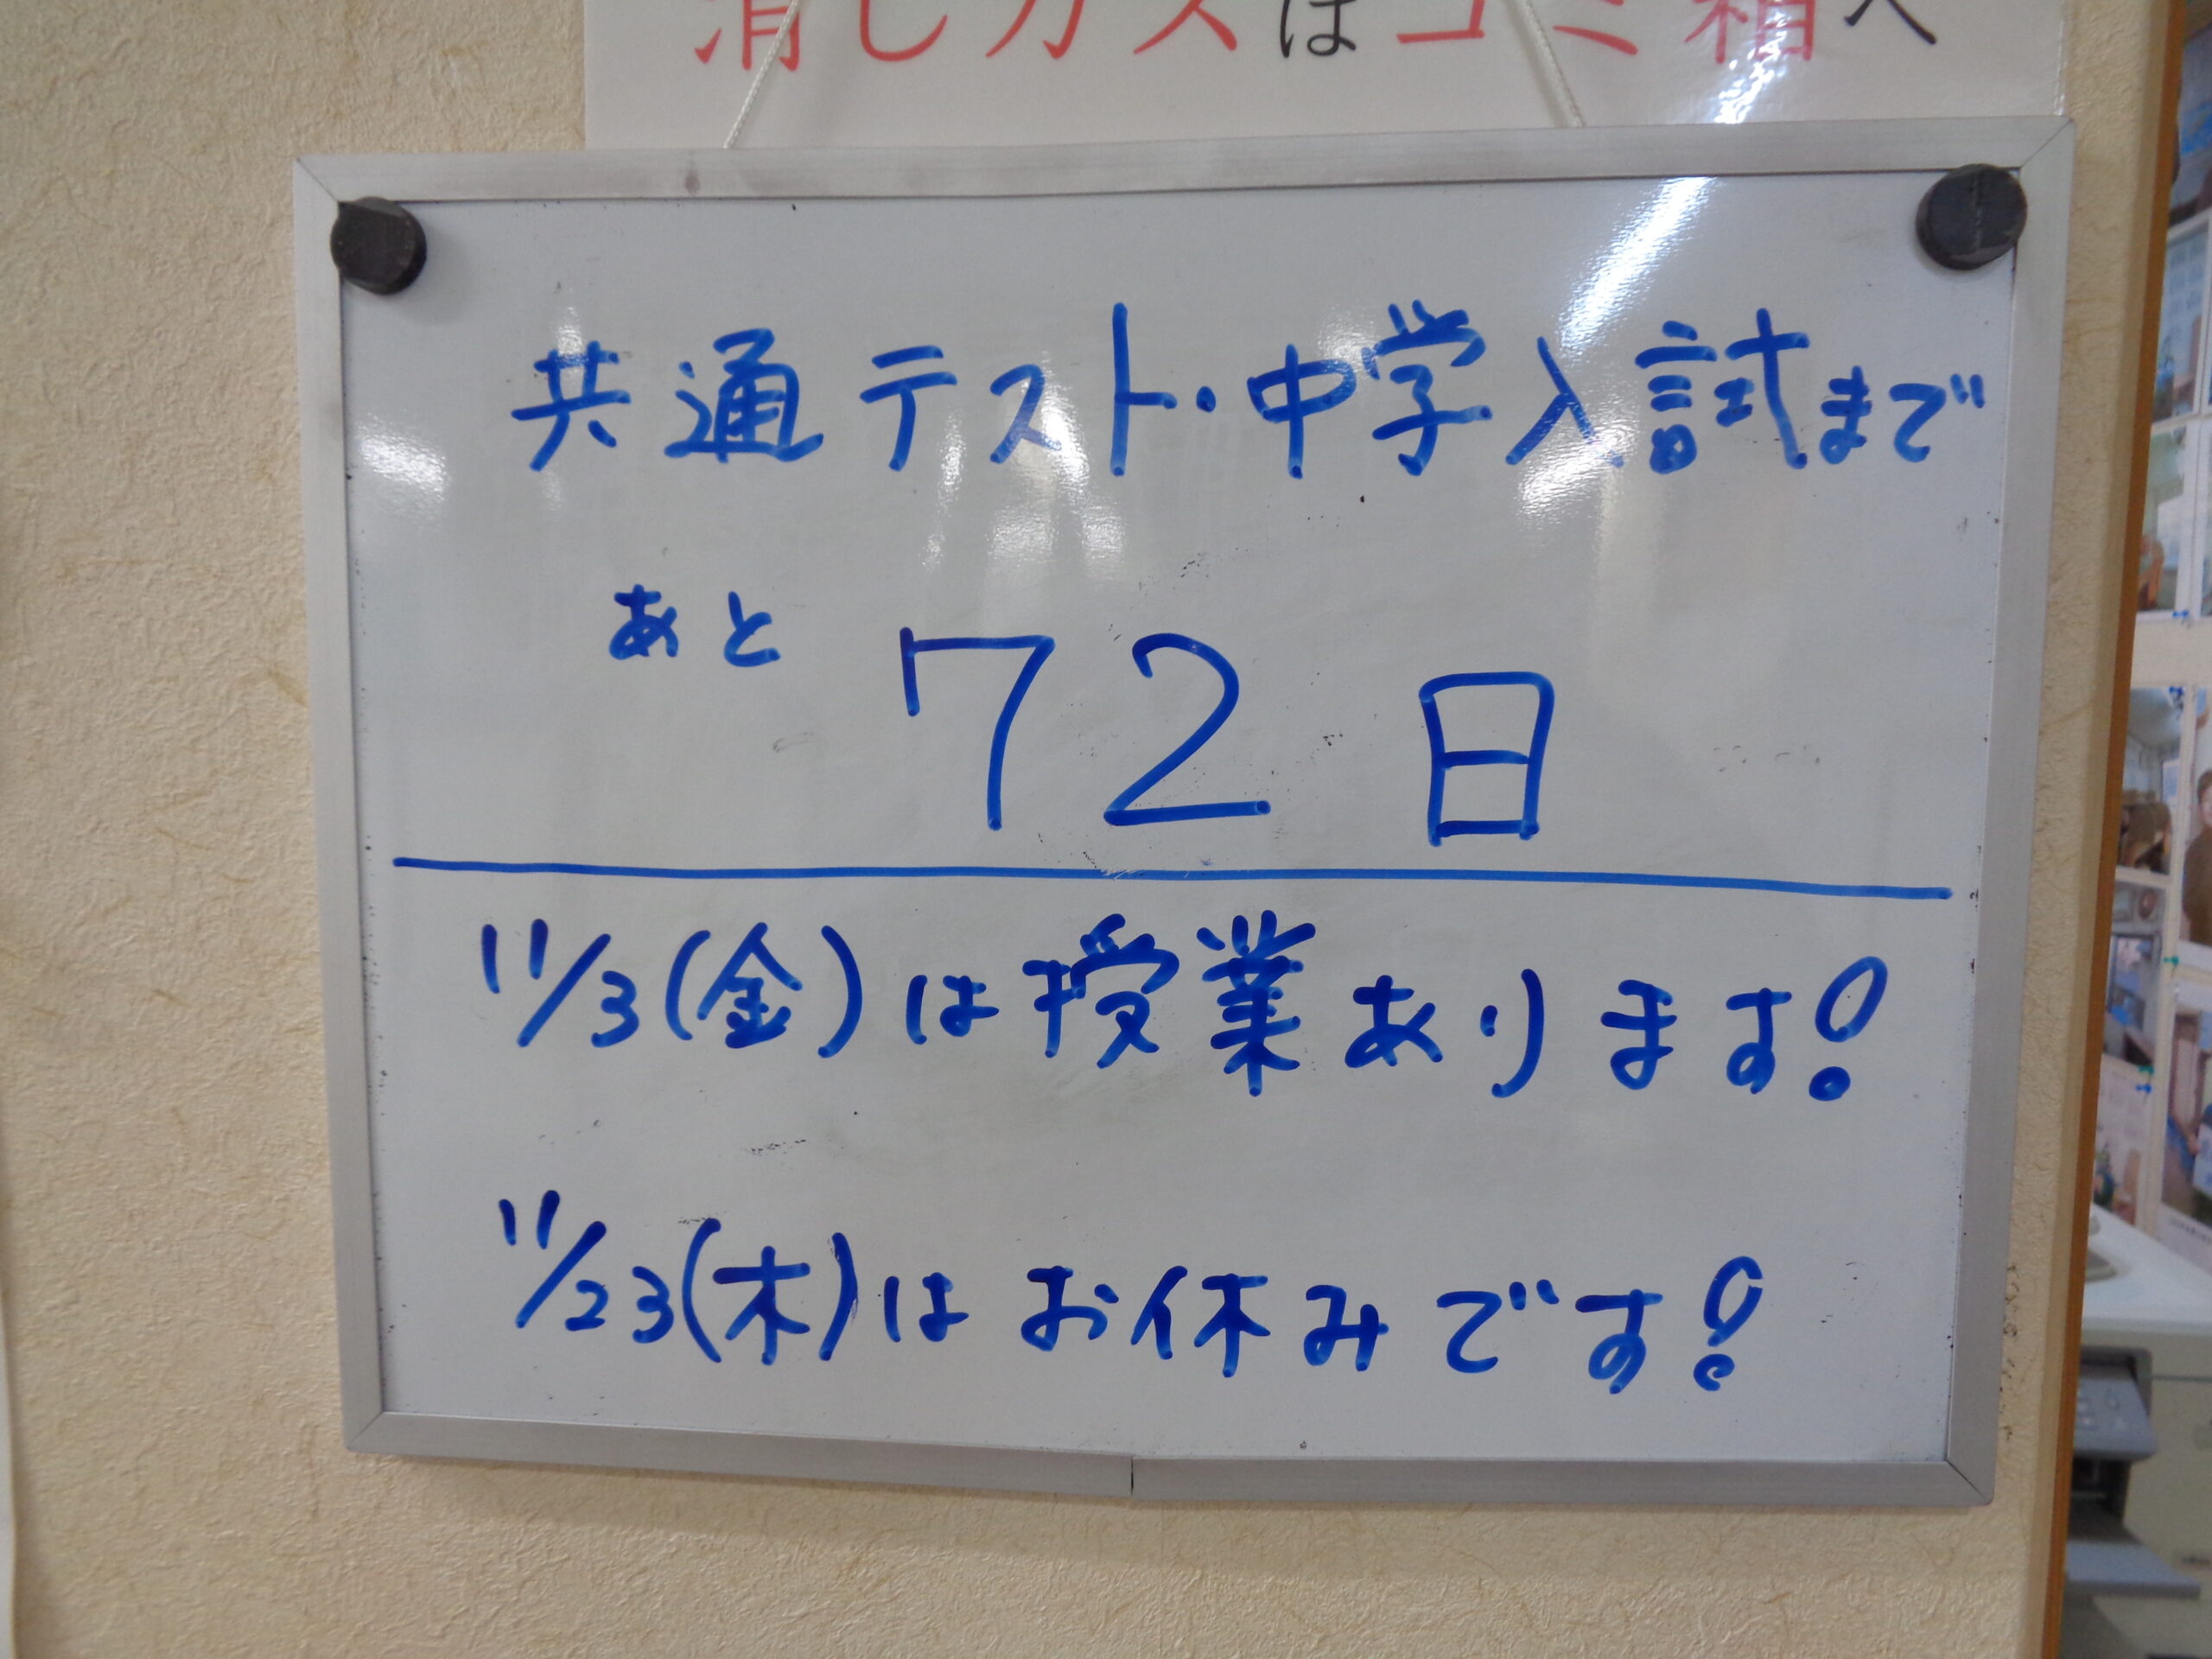 消しカスはゴミ箱へ
共通テスト・中学入試まで
あと 72 日
11/3(金)は授業あります!
11/23(木)はお休みです!